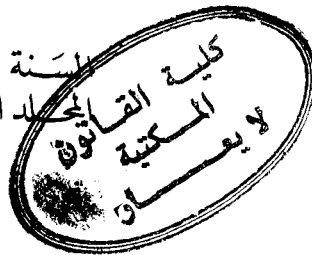 السنة
المجلد
كلية القانون
المكتبة
لا يعار